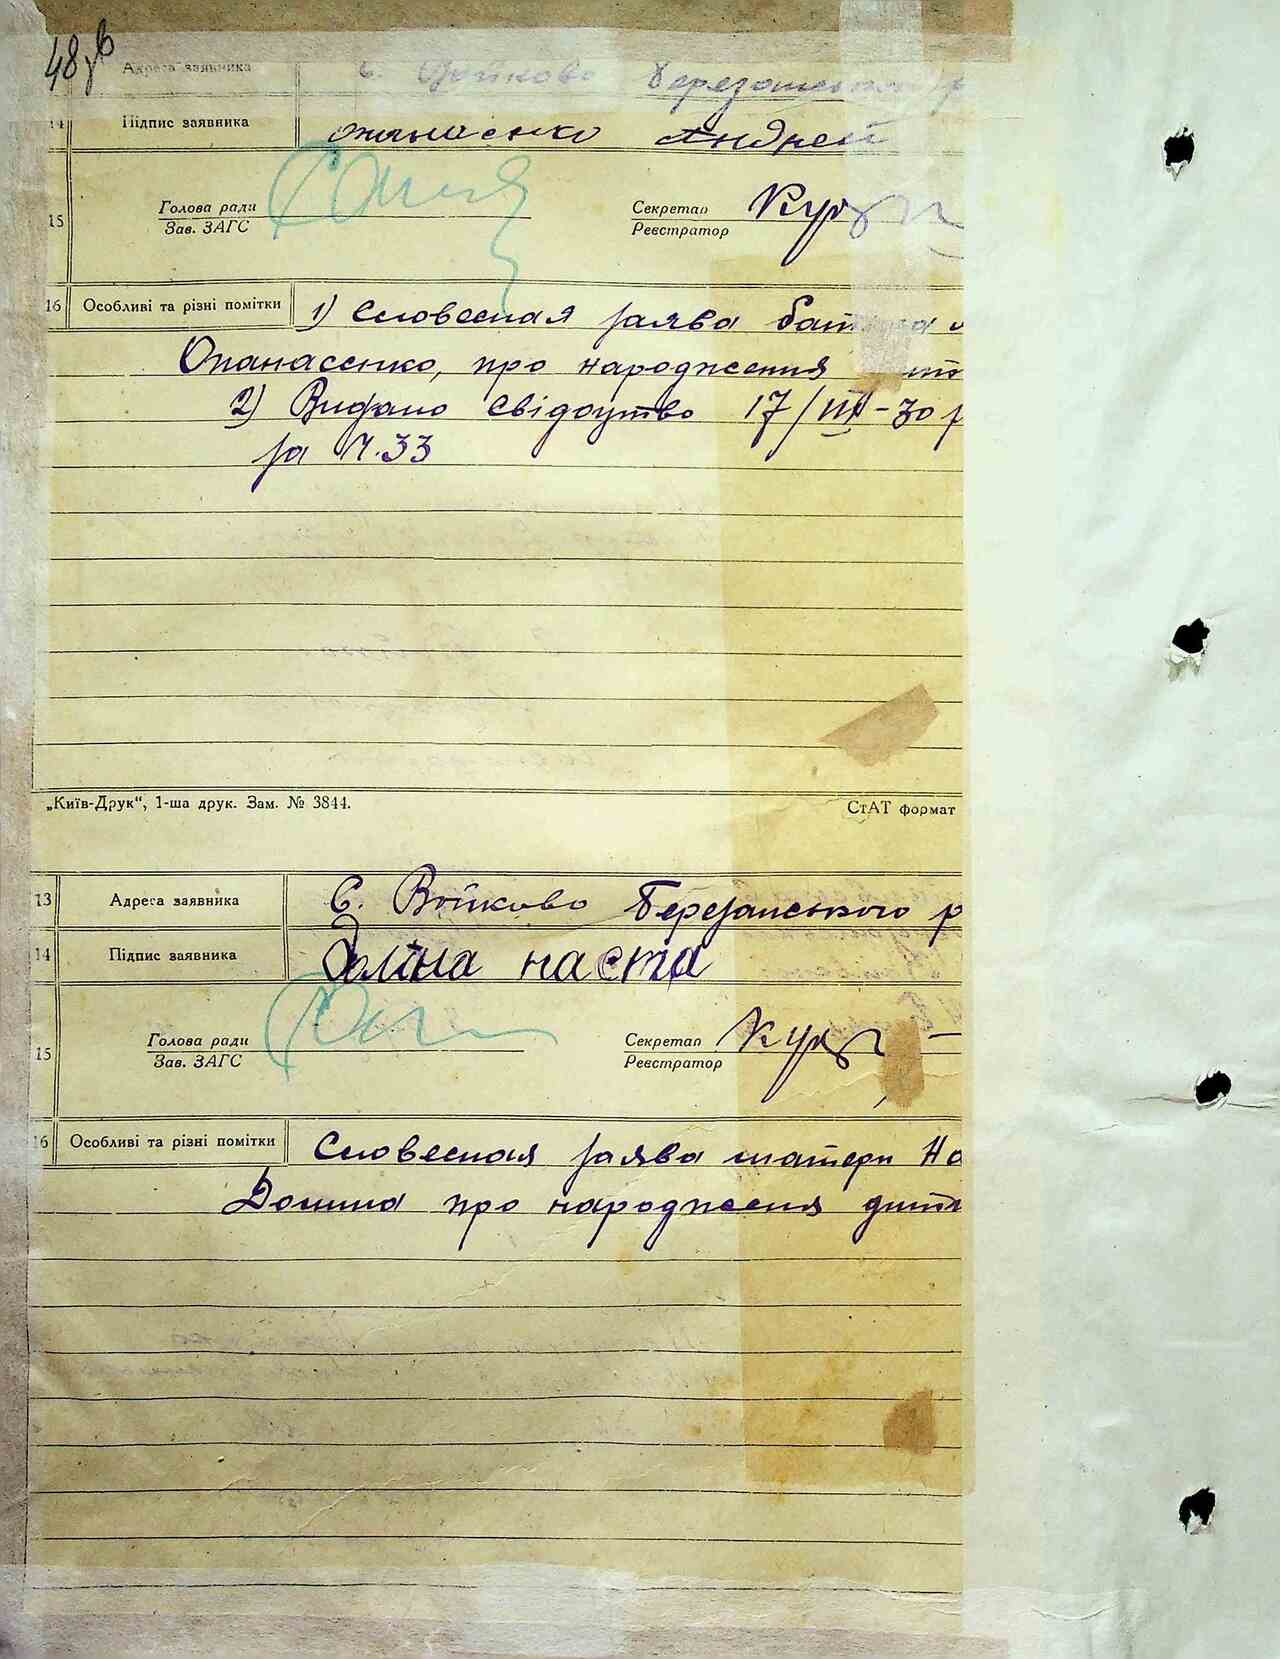 48 зв
Адреса заявника С. Войково Березанського р
14 Підпис заявника Опанасенко Андрей
15 Голова ради Секретар
Зав. ЗАГС Реєстратор
16 Особливі та різні помітки 1) Словесная заява батька
Опанасенко, про народження
2) Видано свідоцтво 17/III-30 р
за Ч.33
„Київ-Друк“, 1-ша друк. Зам. № 3844. СтАТ формат
13 Адреса заявника С. Войково Березанського р
14 Підпис заявника Доліна наста
15 Голова ради Секретар
Зав. ЗАГС Реєстратор
16 Особливі та різні помітки Словесная заява матери На
Долина про народження дитя